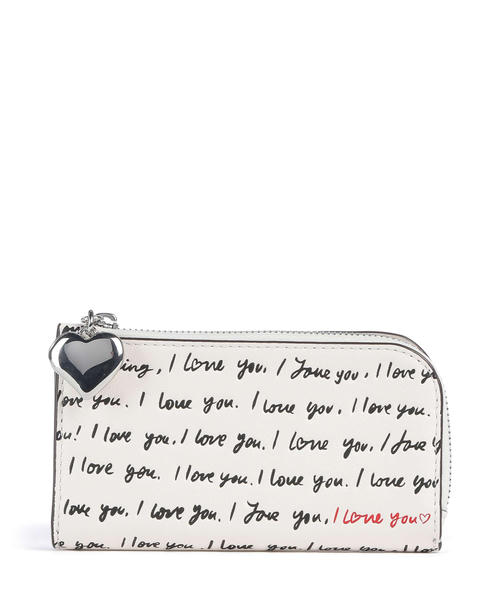 I love you, I love you, I love you
love you. I love you. I love you, I love you.
you! I love you, I love you. I love you, I love y
I love you. I love you. I love you. I love you
love you, I love you. I love you, I love you♡
you. I love you. I love you. I love you